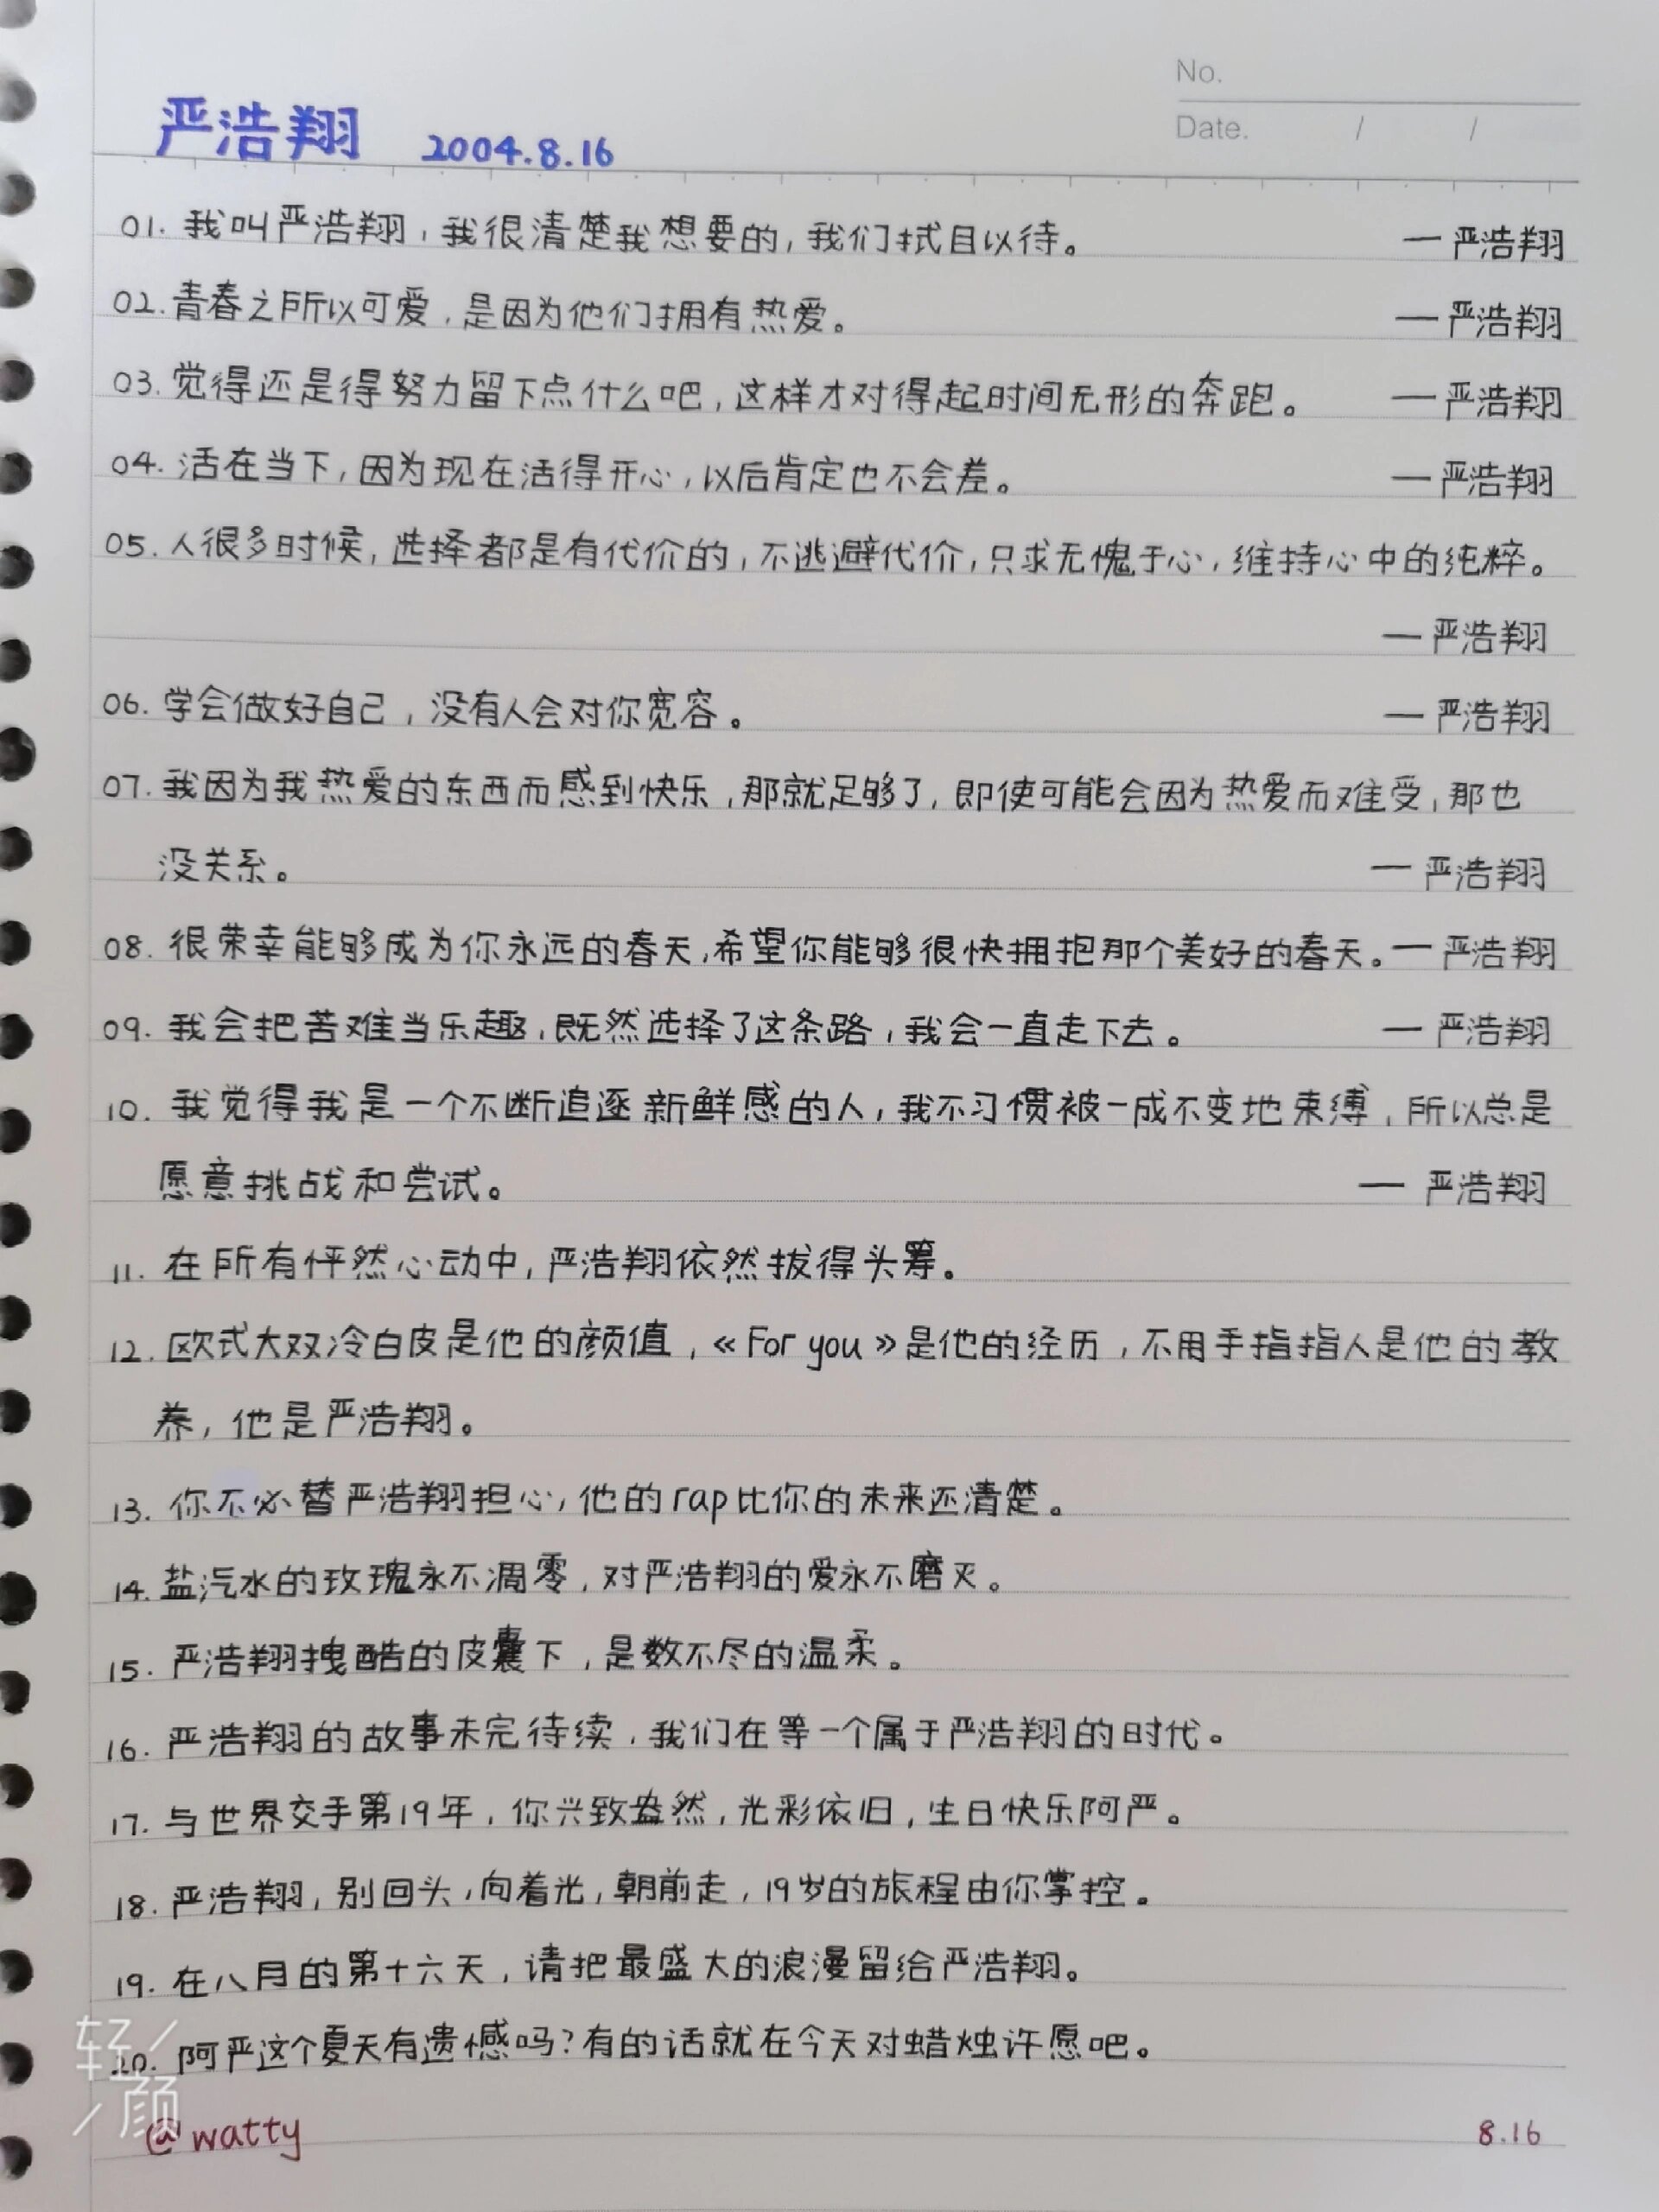 No.
Date. / /
严浩翔 2004.8.16
01. 我叫严浩翔，我很清楚我想要的，我们拭目以待。 — 严浩翔
02. 青春之所以可爱，是因为他们拥有热爱。 — 严浩翔
03. 觉得还是得努力留下点什么吧，这样才对得起时间无形的奔跑。 — 严浩翔
04. 活在当下，因为现在活得开心，以后肯定也不会差。 — 严浩翔
05. 人很多时候，选择都是有代价的，不逃避代价，只求无愧于心，维持心中的纯粹。
— 严浩翔
06. 学会做好自己，没有人会对你宽容。 — 严浩翔
07. 我因为我热爱的东西而感到快乐，那就足够了，即使可能会因为热爱而难受，那也
没关系。 — 严浩翔
08. 很荣幸能够成为你永远的春天，希望你能够很快拥抱那个美好的春天。— 严浩翔
09. 我会把苦难当乐趣，既然选择了这条路，我会一直走下去。 — 严浩翔
10. 我觉得我是一个不断追逐新鲜感的人，我不习惯被一成不变地束缚，所以总是
愿意挑战和尝试。 — 严浩翔
11. 在所有怦然心动中，严浩翔依然拔得头筹。
12. 欧式大双冷白皮是他的颜值，《For you》是他的经历，不用手指指人是他的教
养，他是严浩翔。
13. 你不必替严浩翔担心，他的rap比你的未来还清楚。
14. 盐汽水的玫瑰永不凋零，对严浩翔的爱永不磨灭。
15. 严浩翔拽酷的皮囊下，是数不尽的温柔。
16. 严浩翔的故事未完待续，我们在等一个属于严浩翔的时代。
17. 与世界交手第19年，你兴致盎然，光彩依旧，生日快乐阿严。
18. 严浩翔，别回头，向着光，朝前走，19岁的旅程由你掌控。
19. 在八月的第十六天，请把最盛大的浪漫留给严浩翔。
20. 阿严这个夏天有遗憾吗？有的话就在今天对蜡烛许愿吧。
轻颜
@watty 8.16